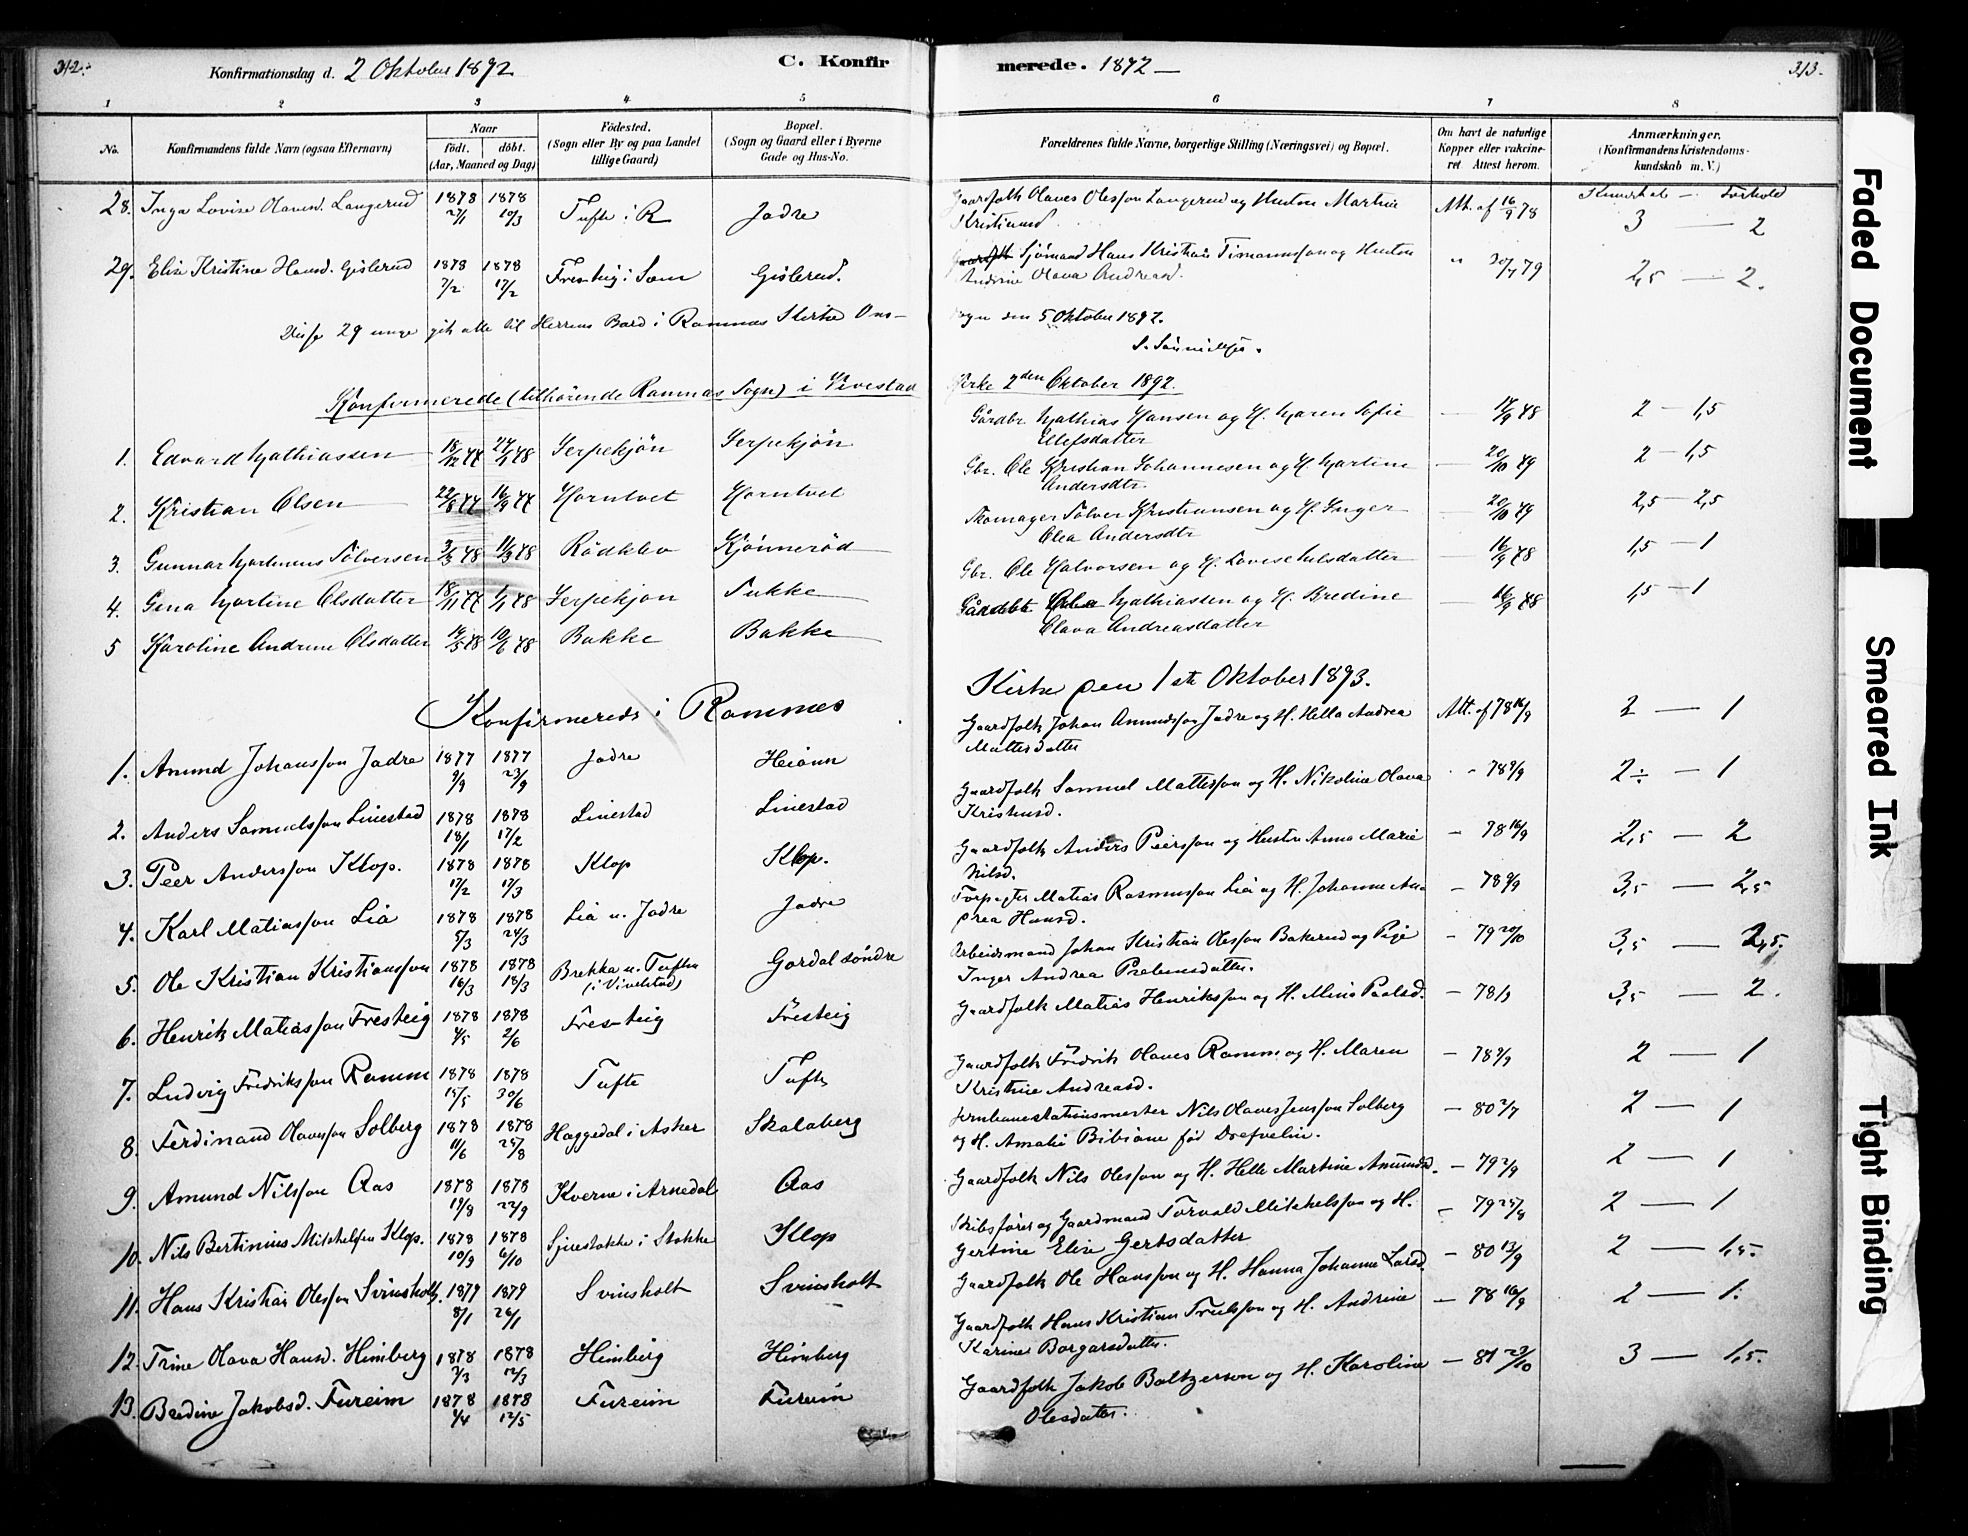 312.
Konfirmationsdag d. 2 Oktober 1892.
C. Konfir
merede. 1892 —
313.
1 2 3 4 5 6 7 8
No.
Konfirmandens fulde Navn (ogsaa Efternavn)
Naar
født. døbt.
(Aar, Maaned og Dag)
Födested.
(Sogn eller By og paa Landet
tillige Gaard)
Bopæl.
(Sogn og Gaard eller i Byerne
Gade og Hus-No.
Forældrenes fulde Navne, borgerlige Stilling (Næringsvei) og Bopæl.
Om havt de naturlige
Kopper eller vakcine-
ret Attest herom.
Anmærkninger,
(Konfirmandens Kristendoms-
kundskab m. V.)
Kundskab — Forhold
28. Inga Lovise Olavesd. Langerud 1878 27/1 1878 10/3 Tufte i R Jadre Gaardfolk Olaves Olesson Langerud og Hustru Martine Att. af 16/9 78 3 — 2
Kristiansd.
29. Elise Kristine Hansd. Gislerud 1878 7/2 1878 17/2 Fresteig i Sam Gislerud. Sjømand Hans Kristian Timannsson og Hustru " 30/7 79 2,5 — 2.
Andrine Olava Andreasd.
Disse 29 unge gik alle til Herrens Bord i Ramnæs Kirke Ons-
dagen den 5 Oktober 1892.
Konfirmerede (tilhørende Ramnæs Sogn) i Vivestad
Kirke 2den Oktober 1892.
1. Edvard Mathiassen 18/12 77 27/1 78 Serpekjøn Serpekjøn Gårdbr. Mathias Hansen og H. Maren Sofie — 17/9 78 2 — 1,5
Ellefsdatter
2. Kristian Olsen 22/8 77 16/9 77 Horntvet Horntvet Gbr. Ole Kristian Johannesen og H. Martine — 20/10 79 2 — 1,5
Andersdtr.
3. Gunnar Martinius Sølversen 3/3 78 11/3 78 Rødklev Kjønnerød Skomager Sølver Kristiansen og H. Inger — 20/10 79 2,5 — 2,5
Olea Andersdtr
4. Gina Martine Olsdatter 18/11 77 1/1 78 Serpekjøn Sukke Gbr. Ole Halvorsen og H. Lovise Nilsdatter — 16/9 78 1,5 — 1
5 Karoline Andrine Olsdatter 14/5 78 10/6 78 Bakke Bakke Gårdbr. Ole Mathiassen og H. Bredine — 16/9 78 1,5 — 1
Olava Andreasdatter
Konfirmerede i Ramnes
Kirke den 1ste Oktober 1893.
1. Amund Johansson Jadre 1877 9/9 1877 23/9 Jadre Heiann Gaardfolk Johan Amundsson Jadre og H. Hella Andrea Att. af 78 16/9 2 — 1
Mattesdatter
2. Anders Samuelsson Linestad 1878 18/1 1878 17/2 Linestad Linestad Gaardfolk Samuel Mattesson og H. Nikoline Olava - 78 9/9 2÷ — 1
Kristensd.
3. Peer Andersson Klop. 1878 17/2 1878 17/3 Klop Klop. Gaardfolk Anders Peersson og Hustru Anna Marie — 78 16/9 2,5 — 2
Nilsd.
4. Karl Matiasson Lia 1878 5/3 1878 24/3 Lia u. Jadre Jadre Forpagter Matias Rasmusson Lia og H. Johanne An- — 78 9/9 3,5 — 2,5
drea Hansd.
5. Ole Kristian Kristiansson 1878 16/3 1878 18/3 Brekka u. Tufte Gordal söndre Arbeidsmand Johan Kristian Olesson Bakerud og Pige — 79 20/10 3,5 — 2,5.
(i Vivelstad)
Inger Andrea Prebensdatter.
6. Henrik Matiasson Fresteig 1878 4/5 1878 2/6 Fresteig Fresteig Gaardfolk Matias Henriksson og H. Mina Paalsd. — 78 3,5 — 2.
7. Ludvig Fredriksson Ramm 1878 15/5 1878 30/6 Tufte Tufte Gaardfolk Fredrik Olaves Ramm og H. Maren — 78 9/9 2 — 1
Kristine Andreasd.
8. Ferdinand Olavesson Solberg 1878 11/6 1878 25/8 Haggedal i Asker Skalaberg Jernbanestationsmester Nils Olaves Jensson Solberg — 80 2/7 2 — 1
og H. Amalie Bibiane fød Drefvelin.
9. Amund Nilsson Aas 1878 19/8 1878 22/9 Kverne i Arnedal Aas Gaardfolk Nils Olesson og H. Helle Martine Amundsd. — 79 2/9 2 — 1
10. Nils Bertinius Mikkelsson Klop. 1878 10/9 1878 6/10 Sjuestokke i Stokke Klop Skibsfører og Gaardmand Torvald Mikkelsson og H. — 79 25/8 2 — 1
Gertine Elise Gertsdatter
11. Hans Kristian Olesson Svinsholt. 1879 8/1 1879 26/1 Svinsholt Svinsholt Gaardfolk Ole Hansson og H. Hanna Johanne Larsd. — 80 13/9 2 — 1,5.
12. Trine Olava Hansd. Himberg 1878 2/3 1878 12/3 Himberg Himberg Gaardfolk Hans Kristian Trulsson og H. Andrine — 78 16/9 2 — 1.
Karine Borgarsdatter.
13. Bredine Jakobsd. Fureim 1878 1/4 1878 12/5 Fureim Fureim Gaardfolk Jakob Baltzerson og H. Karoline — 81 23/10 3 — 1,5.
Olesdatter.
Faded Document
Smeared Ink
Tight Binding